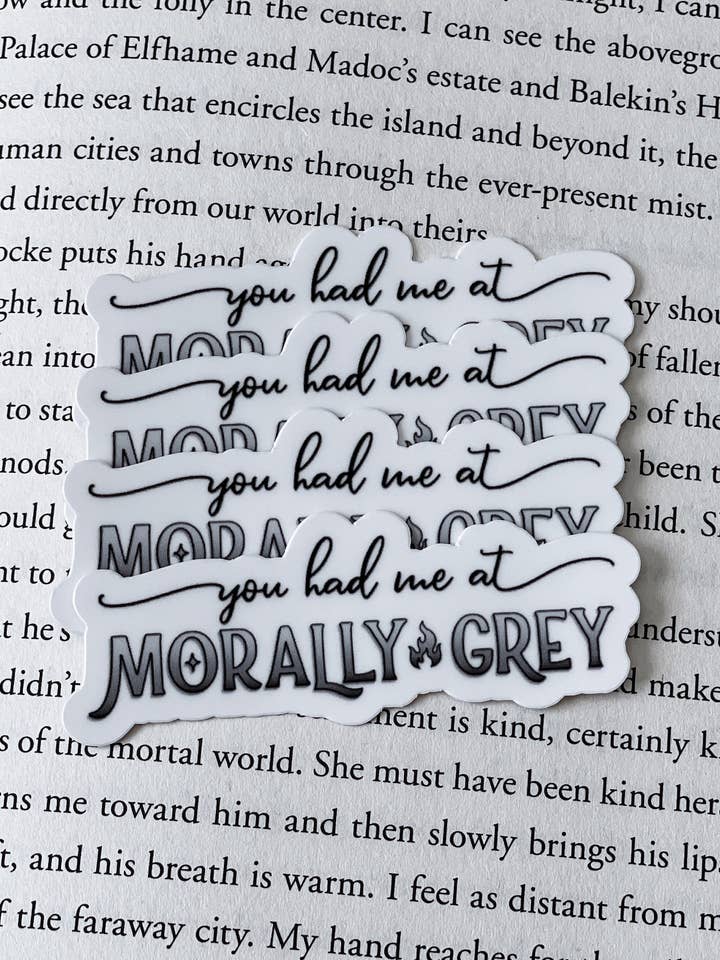 and the folly in the center. I can see the
Palace of Elfhame and Madoc's estate and Balekin's H
see the sea that encircles the island and beyond it, the
cities and towns through the ever-present mist.
d directly from our world into theirs
ocke puts his hand
ght, the
my shou
an into
of fallen
to sta
s of the
nods.
been t
ould
hild. S
nt to
t he's
underst
didn't
d make
ment is kind, certainly k
s of the mortal world. She must have been kind her
rns me toward him and then slowly brings his lip
ft, and his breath is warm. I feel as distant from m
f the faraway city. My hand reaches
you had me at
MORALLY GREY
you had me at
MORALLY GREY
you had me at
MORALLY GREY
you had me at
MORALLY GREY